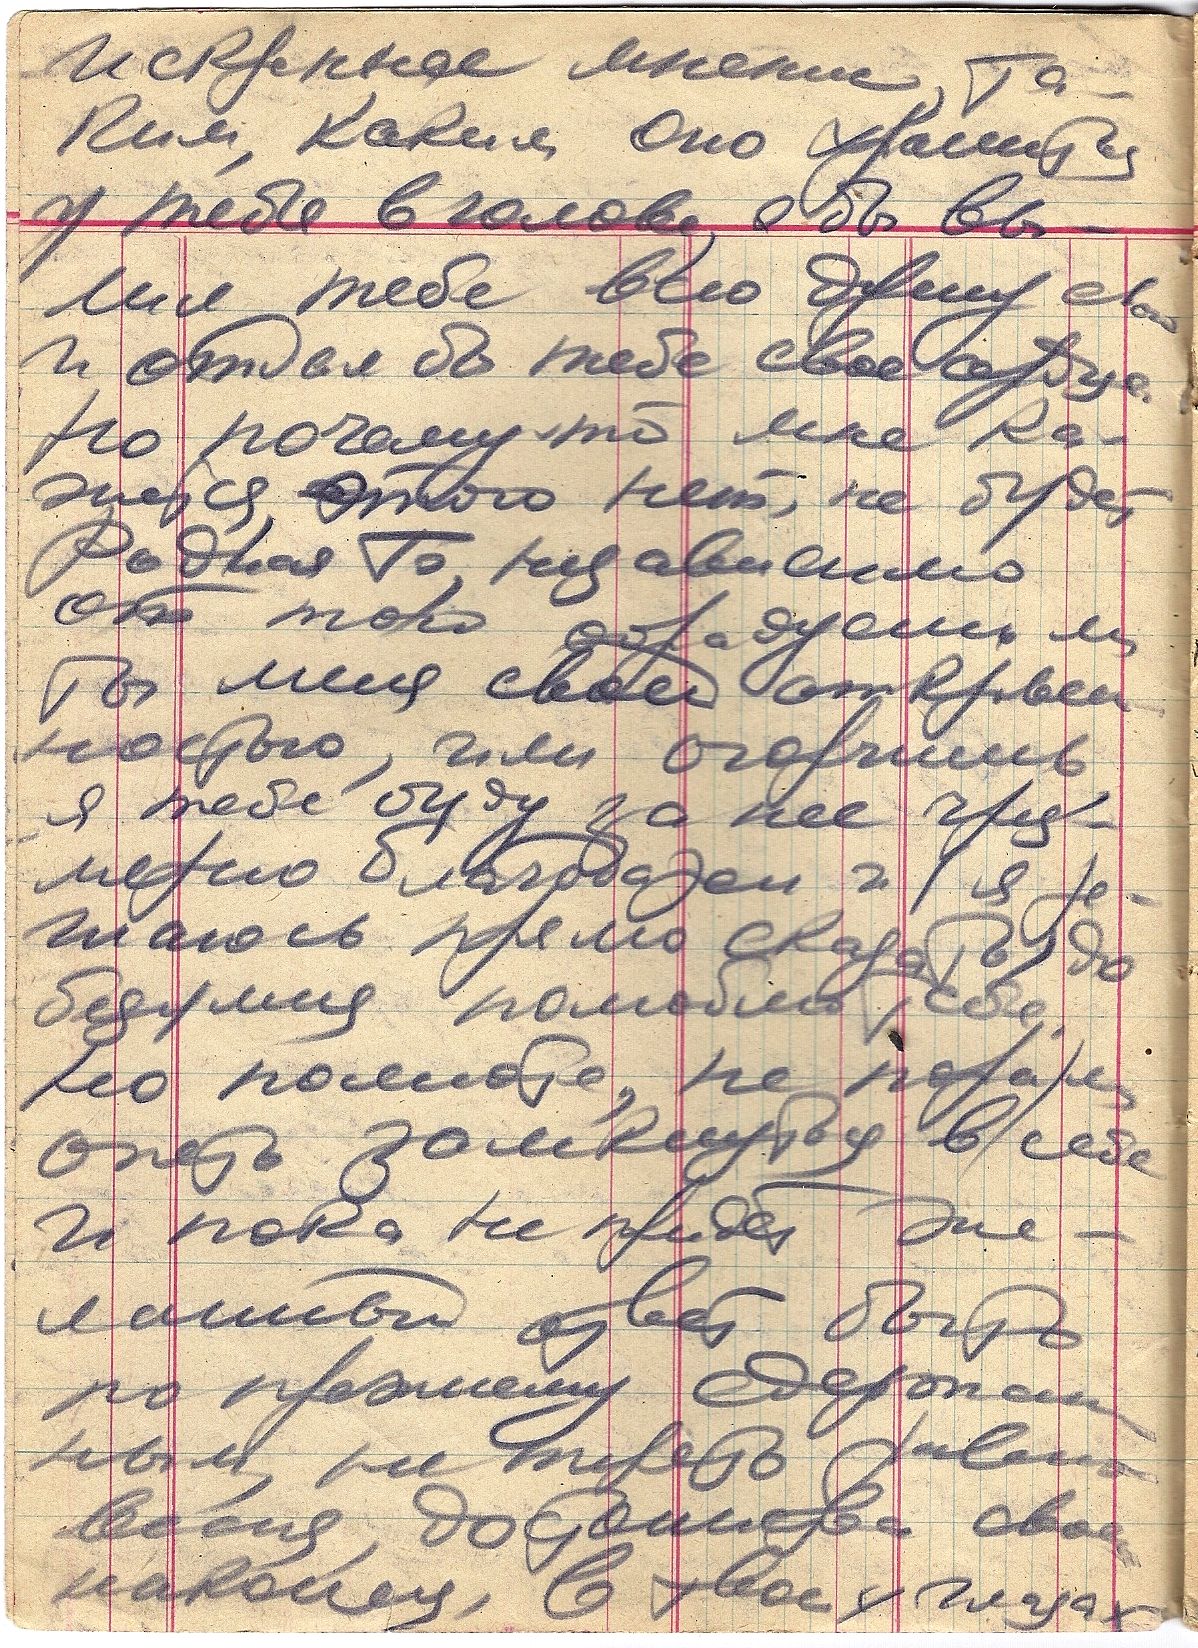 искреннее мнение, та-
ким, каким оно хранится
у тебя в голове, я бы вы-
лил тебе всю душу свою
и отдал бы тебе свое сердце
но почему-то мне ка-
жется этого нет, не будет
Родная То, независимо
от того обрадуешь ли
ты меня своей откровен
ностью, или огорчишь
я тебе буду за нее чрез-
мерно благодарен и (я ре-
шаюсь прямо сказать) до
безумия полюблю тебя.
Но полюбя, не поря
опять замкнуться в себе
и пока не придет же-
ланный ответ быть
по прежнему сдержан
ным, не терять равно
весия, достоинства свое
наконец, в твоих глазах